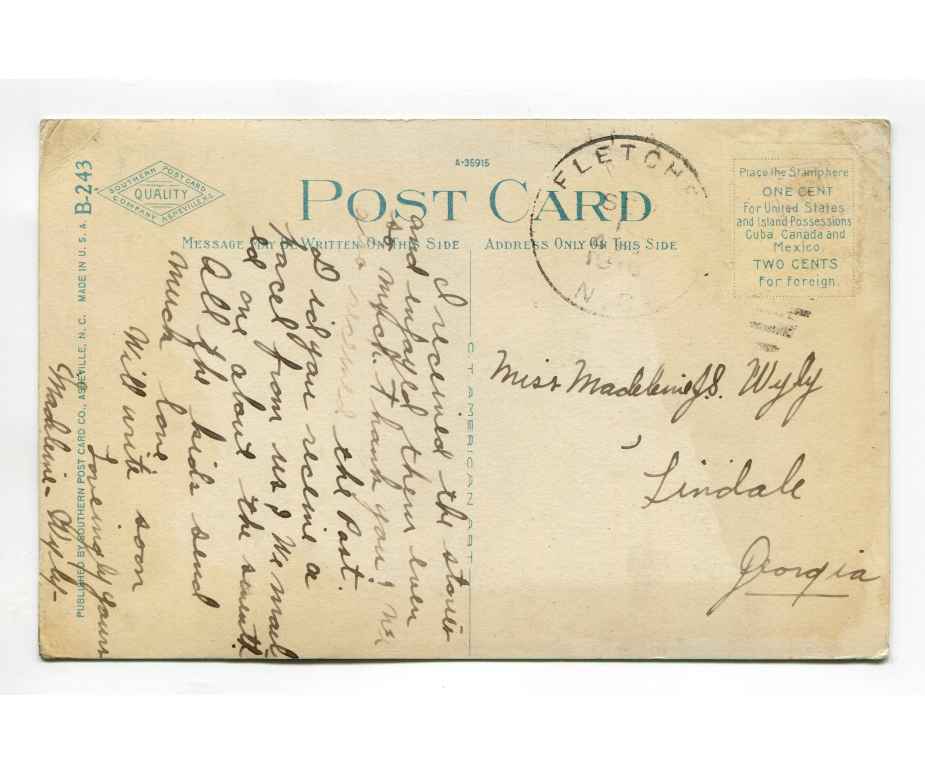 B-243
MADE IN U.S.A.
PUBLISHED BY SOUTHERN POST CARD CO., ASHEVILLE, N. C.
SOUTHERN POST CARD
QUALITY
COMPANY ASHEVILLE N.C.
A-35915
POST CARD
MESSAGE MAY BE WRITTEN ON THIS SIDE
ADDRESS ONLY ON THIS SIDE
FLETCHE
N.
Place the Stamp here
ONE CENT
For United States
and Island Possessions
Cuba, Canada and
Mexico
TWO CENTS
For Foreign.
C. T. AMERICAN ART
I received the stories
and injoyed them ever
so much. Thank you!
received the Past.
Did you receive a
parcel from us? We mail
ed one about the seventh
All the kids send
Much love
Will write soon
Loveingly yours
Madeline Wyly-
Miss Madeleine S. Wyly
Lindale
Georgia